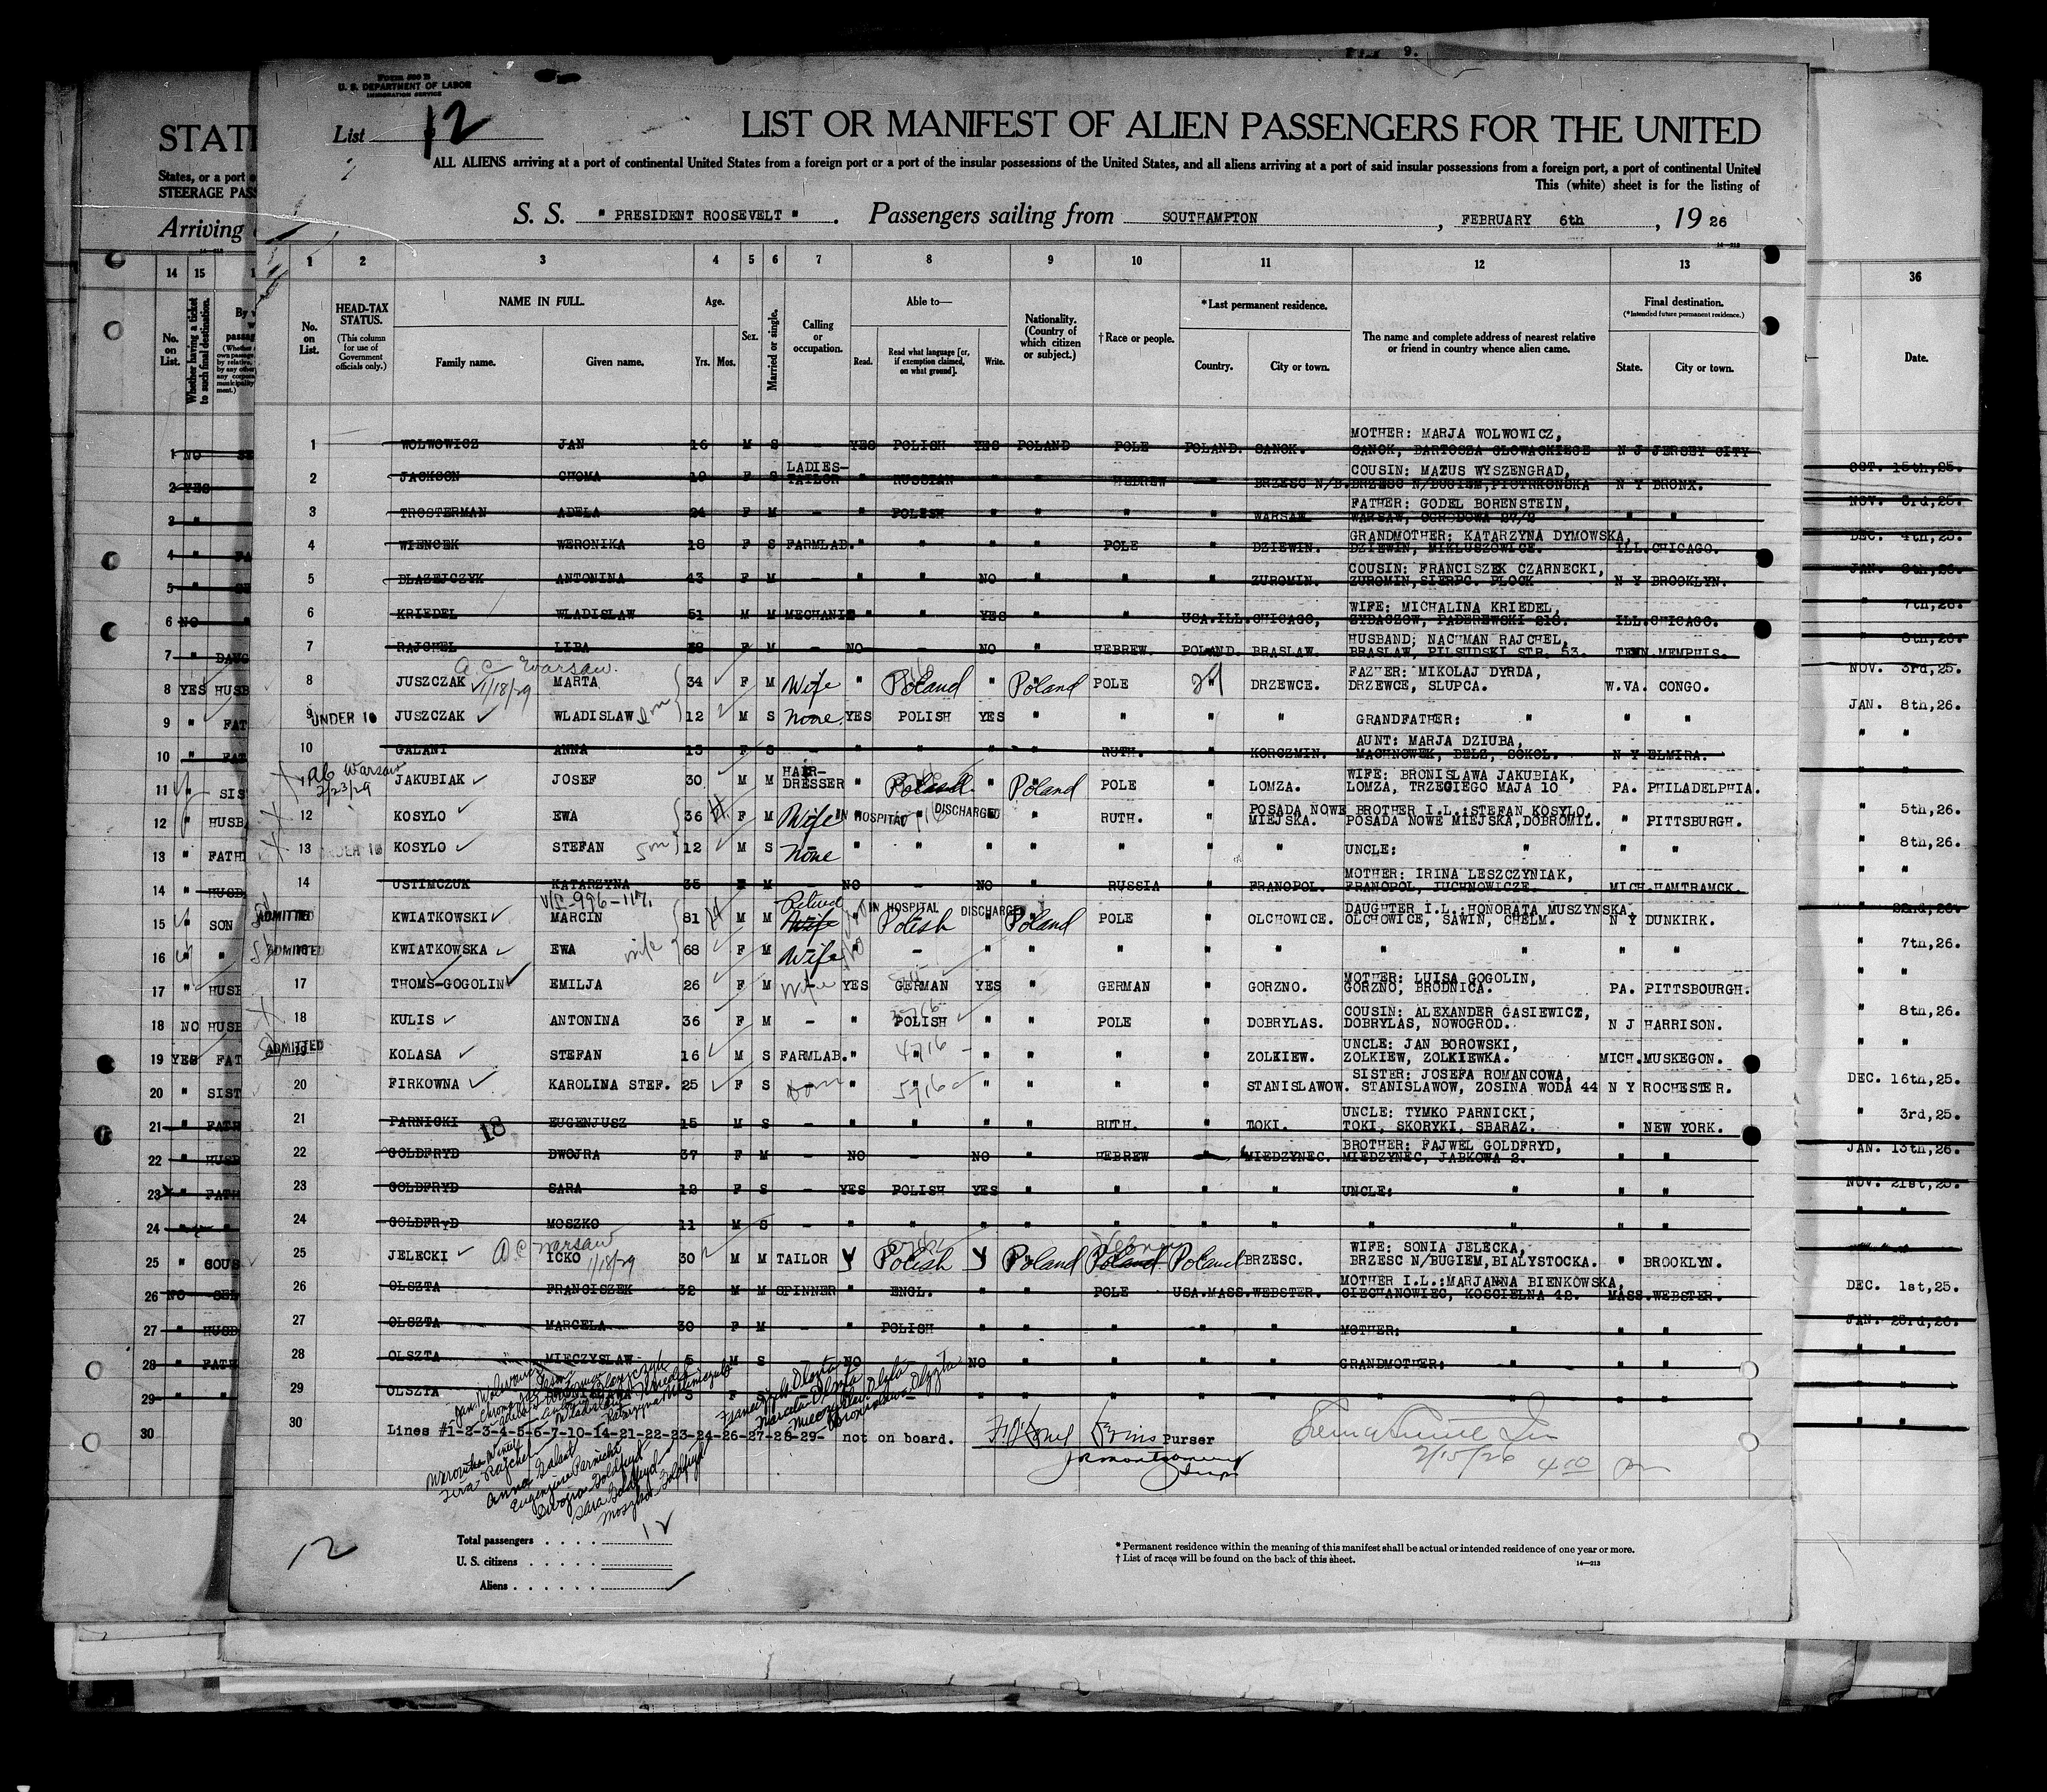 Form 500 B
U. S. DEPARTMENT OF LABOR
IMMIGRATION SERVICE
List 12
LIST OR MANIFEST OF ALIEN PASSENGERS FOR THE UNITED
ALL ALIENS arriving at a port of continental United States from a foreign port or a port of the insular possessions of the United States, and all aliens arriving at a port of said insular possessions from a foreign port, a port of continental United
This (white) sheet is for the listing of
S. S. " PRESIDENT ROOSEVELT ". Passengers sailing from SOUTHAMPTON, FEBRUARY 6th, 19 26
STAT
States, or a port o
STEERAGE PAS
Arriving
14 15
1 2 3 4 5 6 7 8 9 10 11 12 13 36
No. on List.
Whether having a ticket to such final destination.
No. on List.
HEAD-TAX STATUS.
(This column for use of Government officials only.)
NAME IN FULL.
Family name. Given name.
Age.
Yrs. Mos.
Sex.
Married or single.
Calling or occupation.
Able to—
Read. Read what language [or, if exemption claimed, on what ground]. Write.
Nationality. (Country of which citizen or subject.)
†Race or people.
*Last permanent residence.
Country. City or town.
The name and complete address of nearest relative or friend in country whence alien came.
Final destination.
(*Intended future permanent residence.)
State. City or town.
Date.
1 WOLWOWICZ JAN 16 M S - YES POLISH YES POLAND POLE POLAND. SANOK. MOTHER: MARJA WOLWOWICZ,
SANOK, BARTOSZA GLOWACKIEGE N J JERSEY CITY OCT. 15th,25.
2 JACKSON CHOMA 19 F S LADIES-TAILOR " RUSSIAN " " HEBREW " BRZESC N/B. COUSIN: MAZUS WYSZENGRAD,
BRZESC N/BUGIEM, PIOTRKONSKA N Y BRONX. NOV. 3rd,25.
3 TROSTERMAN ADELA 24 F M - " POLISH " " " " WARSAW FATHER: GODEL BORENSTEIN,
WARSAW, OGRODOWA 27/2 " "
4 WIENCEK WERONIKA 18 F S FARMLAB. " " " " POLE " DZIEWIN. GRANDMOTHER: KATARZYNA DYMOWSKA,
DZIEWIN, MIKLUSZOWICE. ILL. CHICAGO. DEC. 4th,25.
5 BLAZEJCZYK ANTONINA 43 F M - " " NO " " " ZUROMIN. COUSIN: FRANCISZEK CZARNECKI,
ZUROMIN, SIERPC. PLOCK N Y BROOKLYN. JAN. 8th,26.
6 KRIEDEL WLADISLAW 51 M M MECHANIC " " YES " " USA.ILL. CHICAGO, WIFE: MICHALINA KRIEDEL,
ZYDACZOW, PADEREWSKI 218. ILL. CHICAGO. " 7th,26.
7 RAJCHEL LIBA 38 F M - NO - NO " HEBREW. POLAND. BRASLAW. HUSBAND: NACHMAN RAJCHEL,
BRASLAW, PILSUDSKI STR. 53. TENN. MEMPHIS. " 8th,26.
A.C. Warsaw. 1/18/29
8 JUSZCZAK MARTA 34 F M Wife " Poland " Poland POLE " DRZEWCE. FAZHER: MIKOLAJ DYRDA,
DRZEWCE, SLUPCA. W.VA. CONGO. NOV. 3rd,25.
9 UNDER 16 JUSZCZAK WLADISLAW Son 12 M S None YES POLISH YES " " " " GRANDFATHER: " " " JAN. 8th,26.
10 GALANT ANNA 15 F S - " " " " RUTH. " KORCZMIN. AUNT: MARJA DZIUBA,
MACHNOWEK, BELZ, SOKOL. N Y ELMIRA. " "
Warsaw 2/23/29
11 JAKUBIAK JOSEF 30 M M HAIR-DRESSER " Poland " Poland POLE " LOMZA. WIFE: BRONISLAWA JAKUBIAK,
LOMZA, TRZEGIEGO MAJA 10 PA. PHILADELPHIA.
12 KOSYLO EWA 36 F M Wife IN HOSPITAL DISCHARGED " RUTH. " POSADA NOWE MIEJSKA. BROTHER I.L.:STEFAN KOSYLO,
POSADA NOWE MIEJSKA,DOBROMIL. " PITTSBURGH. " 5th,26.
13 UNDER 16 KOSYLO STEFAN Son 12 M S None " " " " " " " UNCLE: " " " " 8th,26.
14 USTIMCZUK KATARZYNA 35 F M NO - NO " RUSSIA " FRANOPOL. MOTHER: IRINA LESZCZYNIAK,
FRANOPOL, JUCHNOWICZE. MICH. HAMTRAMCK. " "
15 ADMITTED KWIATKOWSKI MARCIN 81 M M Retired Wife IN HOSPITAL DISCHARGED Polish Poland POLE " OLCHOWICE. DAUGHTER I.L.:HONORATA MUSZYNSKA,
OLCHOWICE, SAWIN, CHELM. N Y DUNKIRK. " 22nd,26.
16 ADMITTED KWIATKOWSKA EWA wife 68 F M Wife " - " " " " " " " " " " 7th,26.
17 THOMS-GOGOLIN EMILJA 26 F M Wife YES GERMAN YES " GERMAN " GORZNO. MOTHER: LUISA GOGOLIN,
GORZNO, BRODNICA. PA. PITTSBOURGH. " "
18 KULIS ANTONINA 36 F M - " POLISH " " POLE " DOBRYLAS. COUSIN: ALEXANDER GASIEWICZ,
DOBRYLAS, NOWOGROD. N J HARRISON. " 8th,26.
19 ADMITTED KOLASA STEFAN 16 M S FARMLAB. " " " " " " ZOLKIEW. UNCLE: JAN BOROWSKI,
ZOLKIEW, ZOLKIEWKA. MICH. MUSKEGON. " "
20 FIRKOWNA KAROLINA STEF. 25 F S Dom " " " " " " STANISLAWOW. SISTER: JOSEFA ROMANCOWA,
STANISLAWOW, ZOSINA WODA 44 N Y ROCHESTER. DEC. 16th,25.
21 PARNICKI EUGENJUSZ 15 M S - " " " " RUTH. " TOKI. UNCLE: TYMKO PARNICKI,
TOKI, SKORYKI, SBARAZ. " NEW YORK. " 3rd,25.
18
22 GOLDFRYD DWOJRA 37 F M - NO - NO " HEBREW " MIEDZYNEC. BROTHER: FAJWEL GOLDFRYD,
MIEDZYNEC, JABKOWA 2. " " JAN. 13th,26.
23 GOLDFRYD SARA 12 F S - YES POLISH YES " " " " UNCLE: " " " NOV. 21st,25.
24 GOLDFRYD MOSZKO 11 M S - " " " " " " " " " " " " "
A.C. Warsaw 1/18/29
25 JELECKI ICKO 30 M M TAILOR Y Polish Y Poland Poland Hebrew Poland BRZESC. WIFE: SONIA JELECKA,
BRZESC N/BUGIEM,BIALYSTOCKA. " BROOKLYN. " "
26 OLSZTA FRANCISZEK 32 M M SPINNER " ENGL. " " POLE USA.MASS. WEBSTER. MOTHER I.L.:MARJANNA BIENKOWSKA,
CIECHANOWIEC, KOSCIELNA 42. MASS. WEBSTER. DEC. 1st,25.
27 OLSZTA MARCELA 30 F M - " POLISH " " " " " MOTHER: " " " JAN. 23rd,26.
28 OLSZTA MIECZYSLAW 5 M S NO NO " " " " GRANDMOTHER: " " " "
29 OLSZTA 3 F S " - " " " " " " " " " "
30 Lines #1-2-3-4-5-6-7-10-14-21-22-23-24-26-27-28-29- not on board. Purser
Franciszek Olszta
Marcela Olszta
Mieczyslaw Olszta
Weronika Wiencek
Liba Rajchel
Anna Galant
Eugenjusz Parnicki
Dwojra Goldfryd
Sara Goldfryd
Moszko Goldfryd
JR Montgomery
2/15/26 4 10 pm
12
Total passengers . . . . 12
U. S. citizens . . . . .
Aliens . . . . . .
* Permanent residence within the meaning of this manifest shall be actual or intended residence of one year or more.
† List of races will be found on the back of this sheet.
14—213